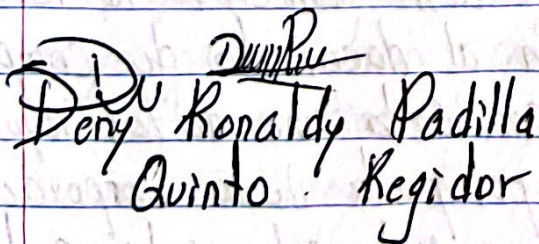 Deny Ronaldy Padilla
Quinto. Regidor